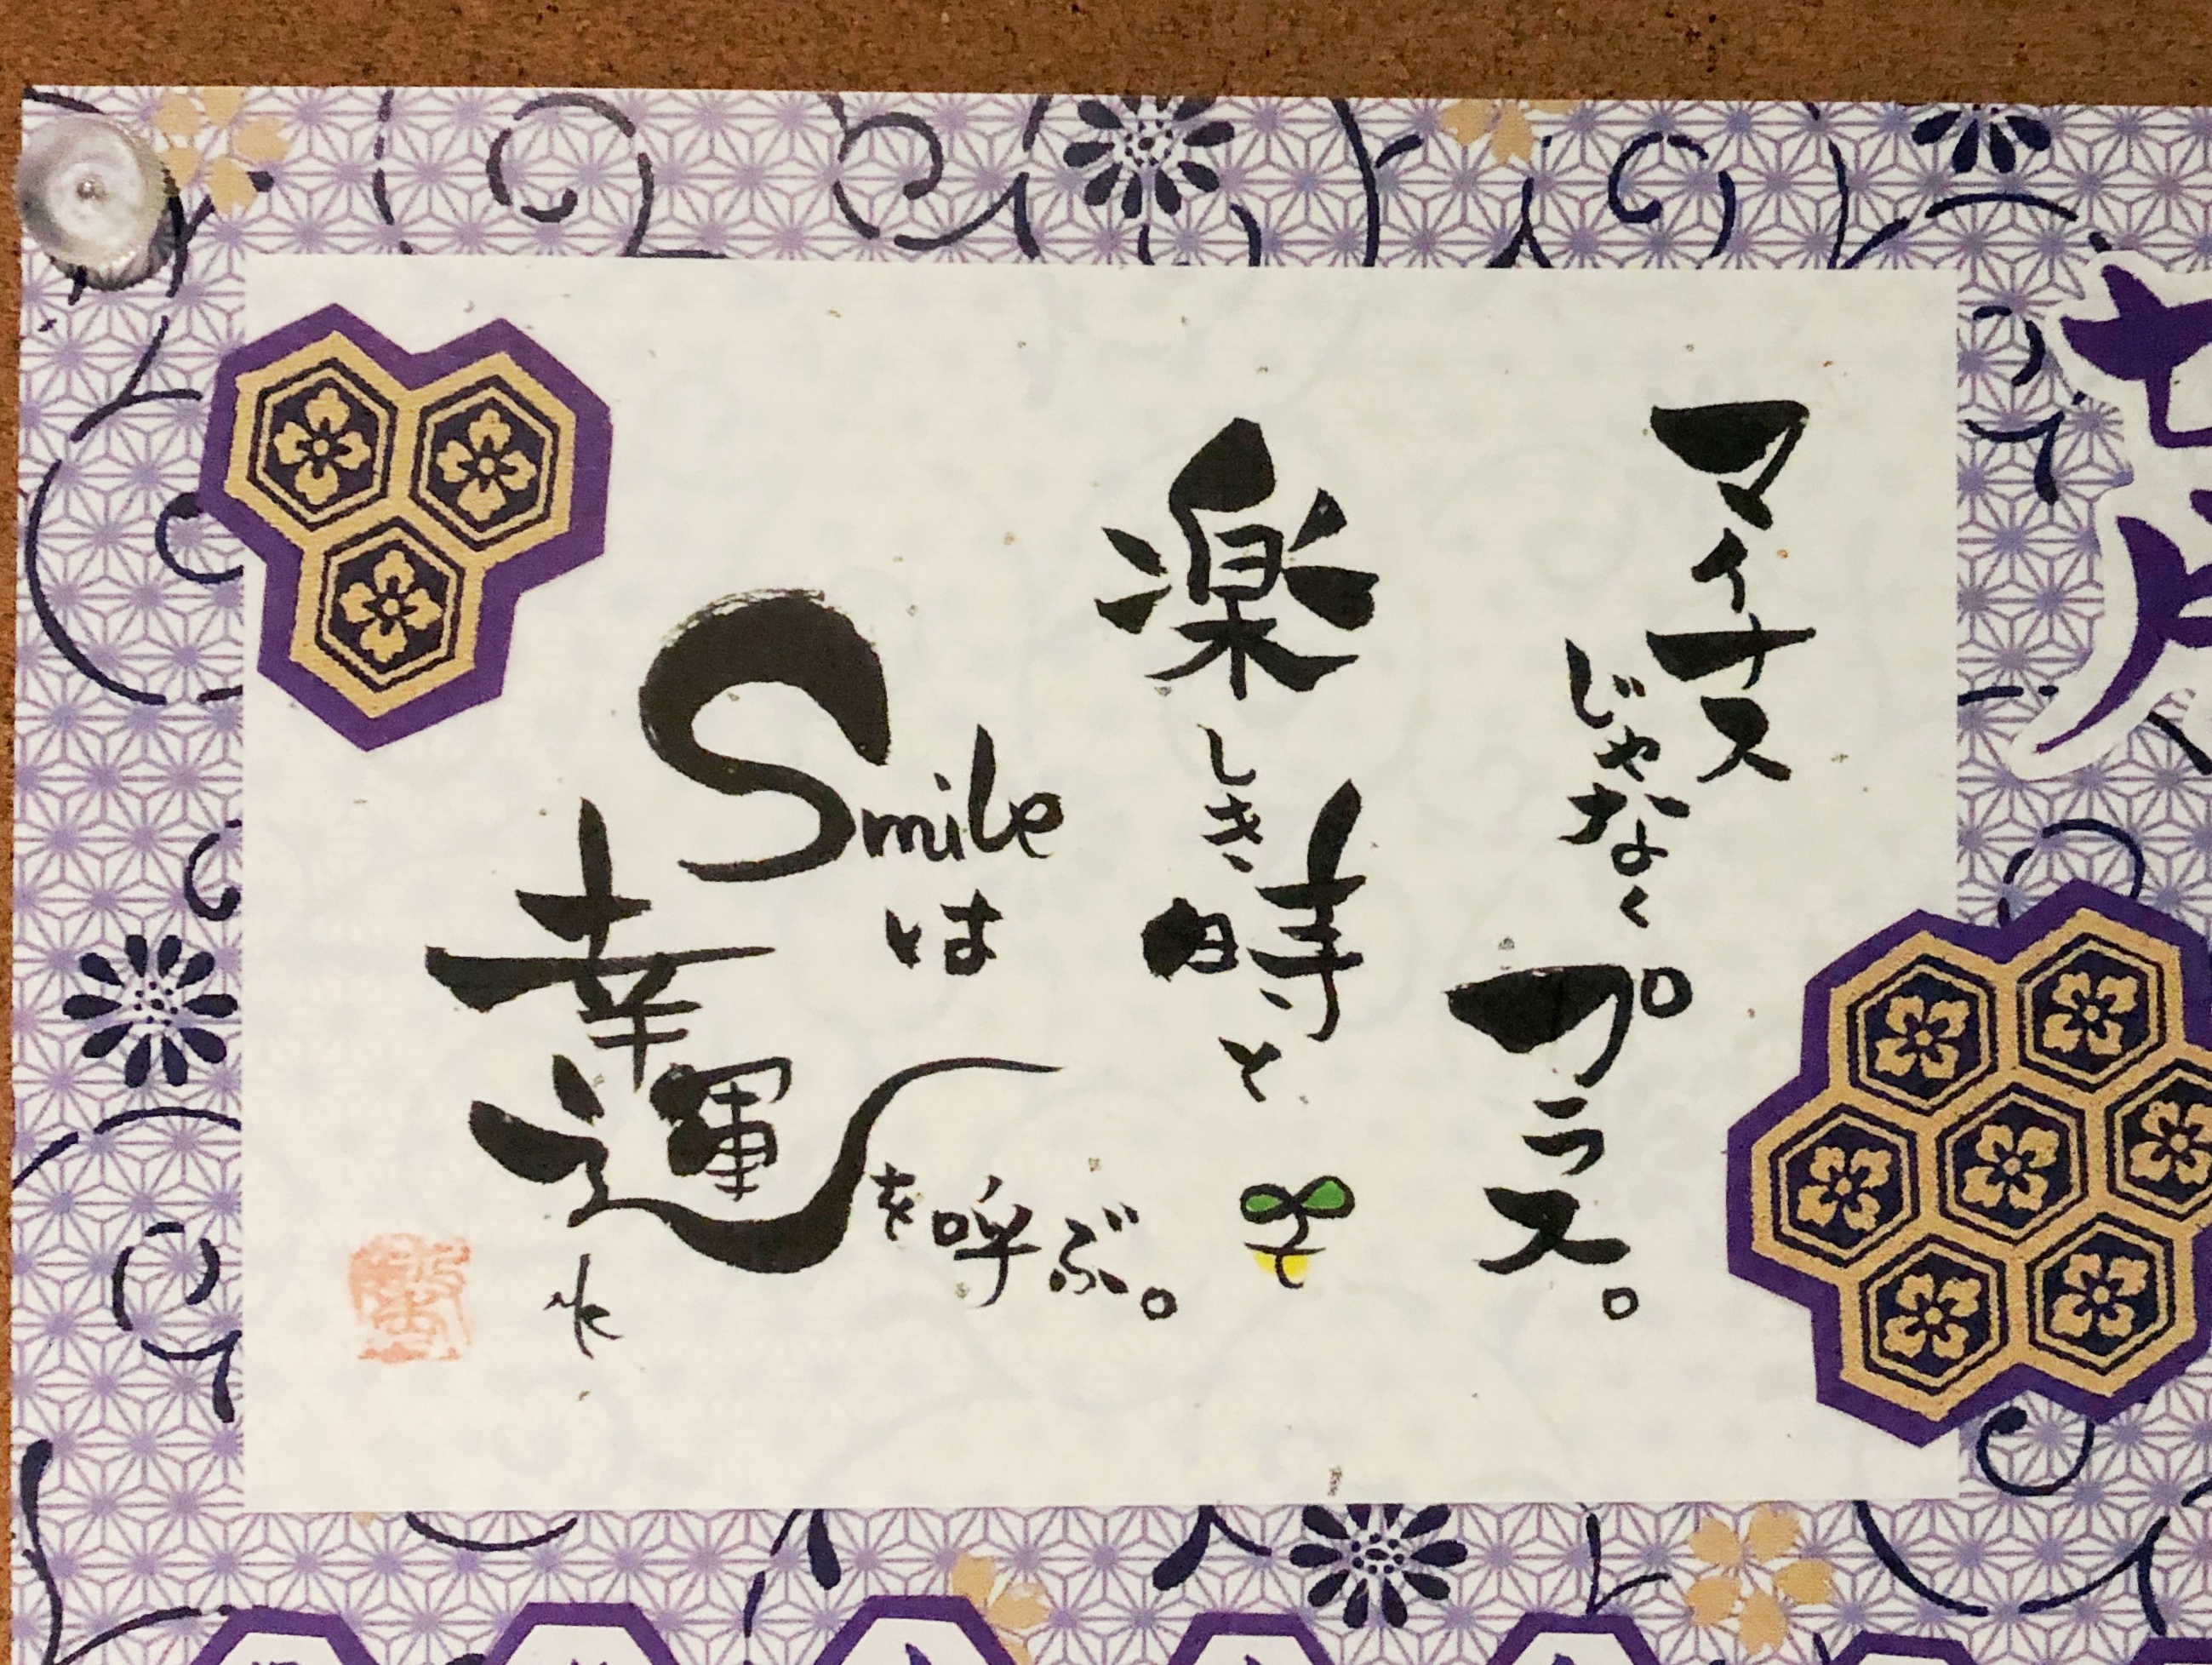 マイナス
じゃなく
プラス。
楽しき時と
Smileは
幸運を呼ぶ。